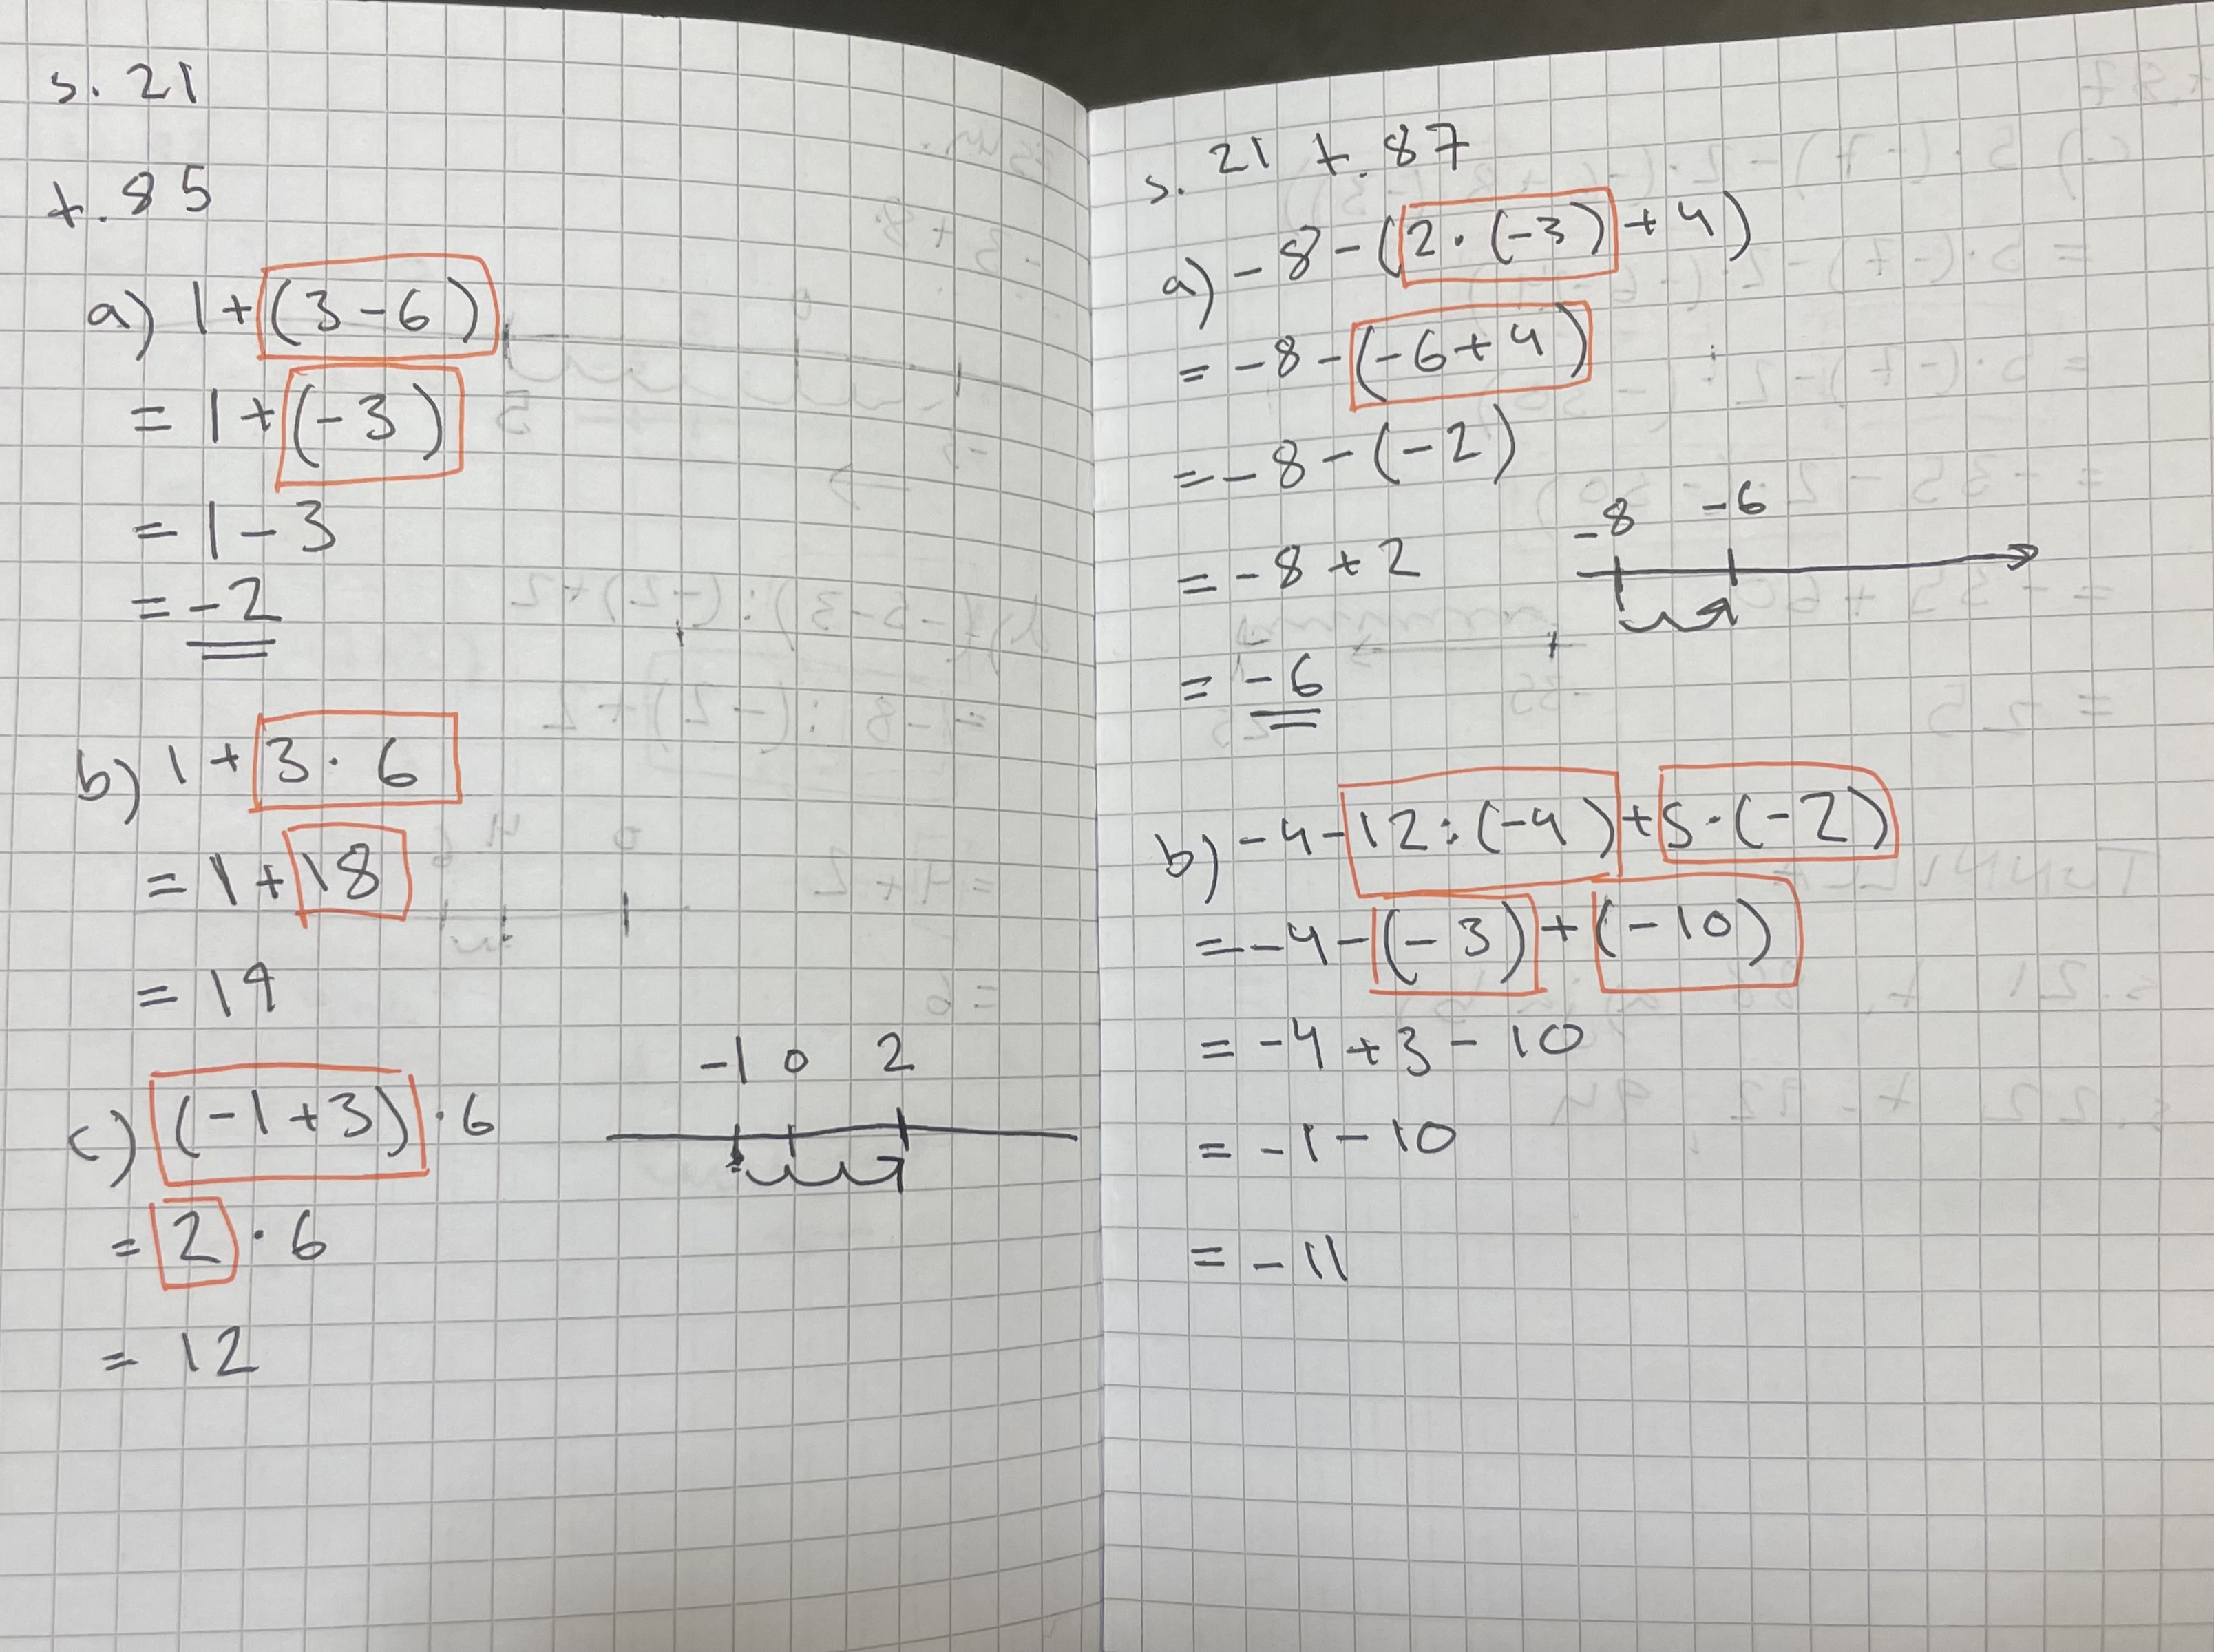 s. 21
t. 85
a) 1+(3-6)
= 1+(-3)
= 1-3
= -2
b) 1+3·6
= 1+18
= 19
c) (-1+3)·6
-1 0 2
= 2·6
= 12
s. 21 t. 87
a) -8-(2·(-3)+4)
= -8-(-6+4)
= -8-(-2)
-8 -6
= -8+2
= -6
b) -4-12:(-4)+5·(-2)
= -4-(-3)+(-10)
= -4+3-10
= -1-10
= -11